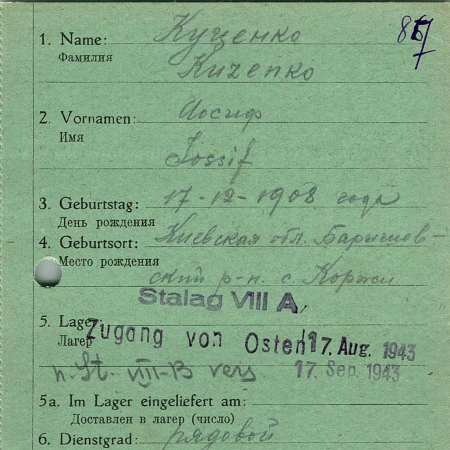 1. Name: Куценко
867
Фамилия Kuzenko
2. Vornamen: Иосиф
Имя
Iossif
3. Geburtstag: 17-12-1908 года
День рождения
4. Geburtsort: Киевская обл. Баришев-
Место рождения ский р-н. с. Коржи
Stalag VIII A,
5. Lager: Zugang von Osten 17. Aug. 1943
Лагер
n. St. VIII-B vers 17. Sep. 1943
5a. Im Lager eingeliefert am:
Доставлен в лагер (число)
6. Dienstgrad: рядовой